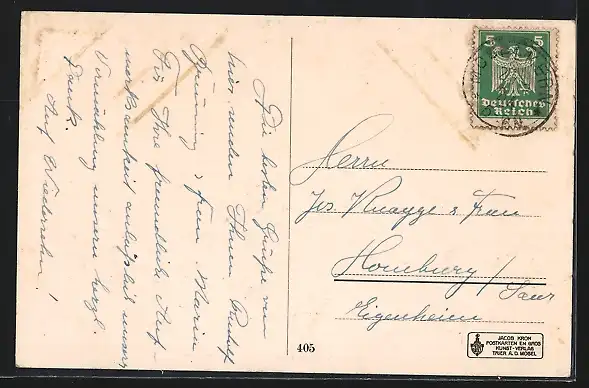 Die besten Grüße von
hier senden Ihnen Rudolf
Brüning & Frau Maria.
Für Ihre freundliche Auf-
merksamkeit anläßlich unserer
Vermählung unsern herzl.
Dank.
Auf Wiedersehn!
5 5
Deutsches
Reich
Herrn
Jos. Knagge & Frau
Homburg / Saar
Eigenheim
405
JACOB KRON
POSTKARTEN EN GROS
KUNST-VERLAG
TRIER A. D. MOSEL